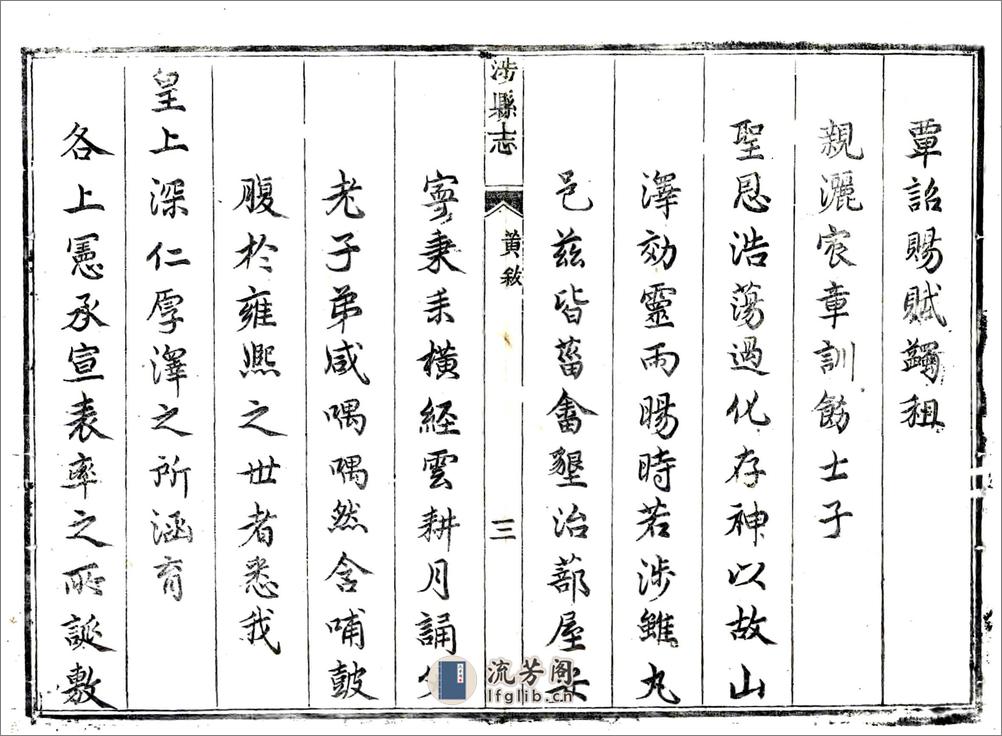 覃詔賜賦蠲租
親灑宸章訓飭士子
聖恩浩蕩過化存神以故山
澤効靈雨暘時若涉雖丸
邑茲皆菑畬墾治蔀屋安
涉縣志
黃敘
三
寧秉耒橫經雲耕月誦父
老子弟咸喁喁然含哺皷
腹於雍熙之世者悉我
皇上深仁厚澤之所涵育
各上憲承宣表率之所誕敷
流芳阁
lfglib.cn